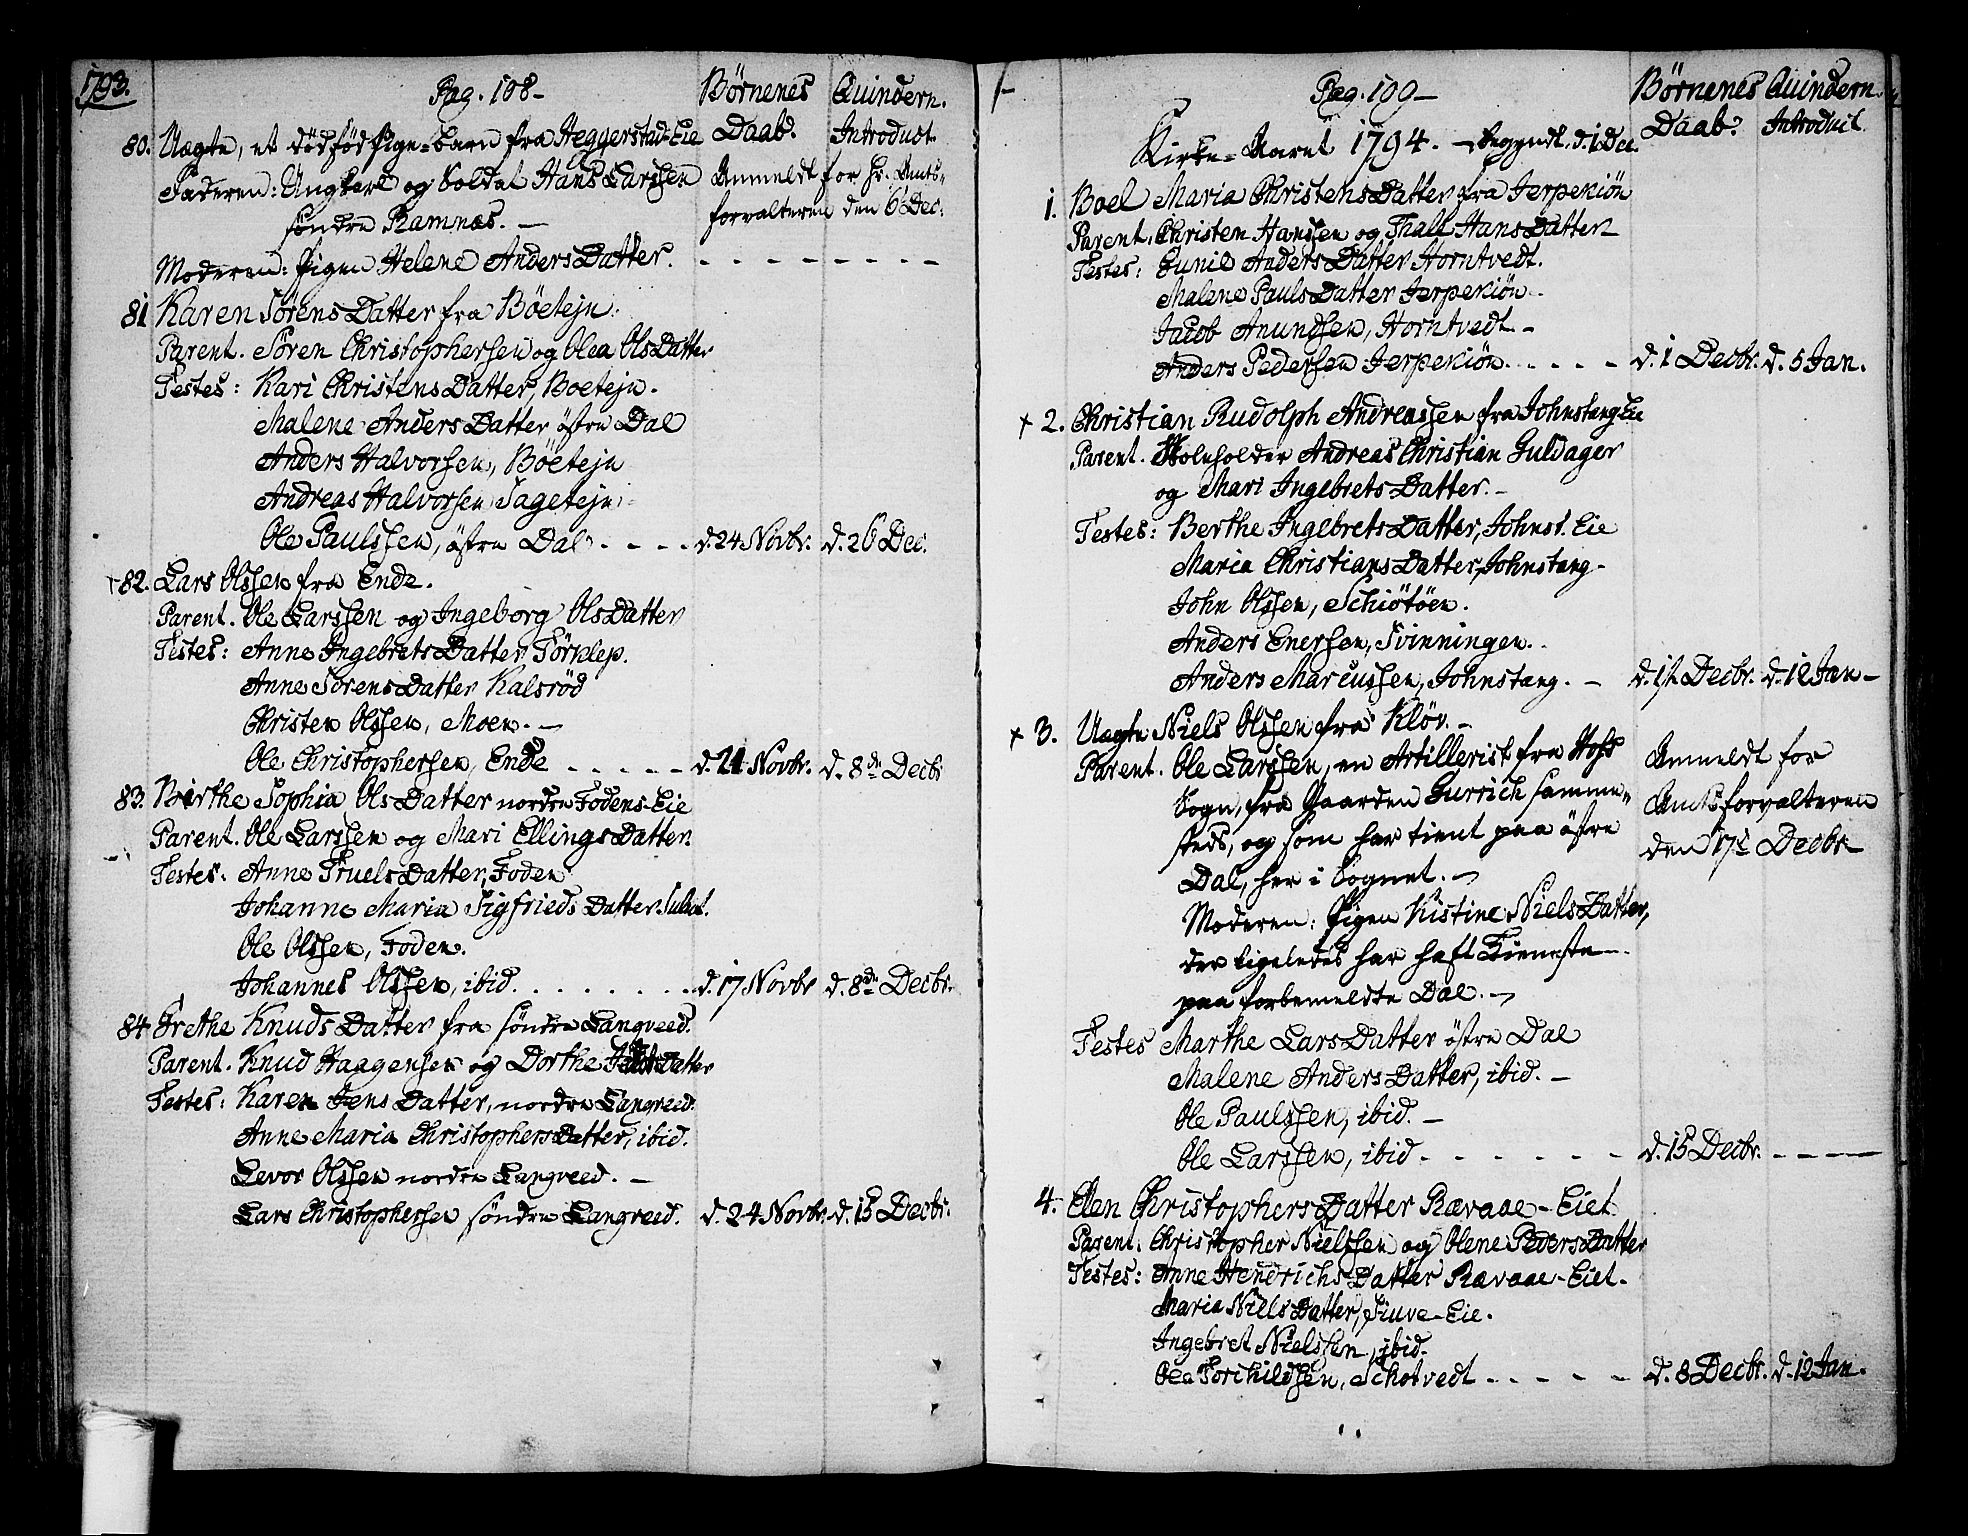 1793.
Pag. 108-
Børnenes Daab.
Quindern. Introduct.
80. Uægte, et dødfød Pige-barn fra Heggerstad-Eie
Faderen: Ungkarl og Soldat Hans Larssen
søndre Ramnæs. -
Anmeldt for Hr. Amts-
forvalteren den 6 Dec:
Moderen: Pigen Helene AndersDatter. - - - - - - - -
81 Karen SørensDatter fra Böetejn.
Parent. Søren Christophersen og Olea OlsDatter
Testes: Kari ChristensDatter, Boetejn.
Malene AndersDatter østre Dal
Anders Halvorsen, Böetejn
Andreas Halvorsen Sagetejn
Ole Paulssen, østre Dal. - - - - d. 24 Novbr. d. 26 Dec.
+82. Lars Olssen fra Ende.
Parent. Ole Larssen og Ingeborg OlsDatter
Testes: Anne IngebretsDatter Törklep.
Anne SørensDatter Kalsrød
Christen Olssen, Moen. -
Ole Christophersen, Ende - - - - - d. 21 Novbr. d. 8de Decbr
83. Birthe Sophia OlsDatter nordre Fodens-Eie
Parent. Ole Larssen og Mari EllingsDatter.
Testes. Anne TruelsDatter, Foden
Johanne Maria SigfriedsDatter
Ole Olssen, Foden.
Johannes Olssen, ibid. - - - - - - - d. 17 Novbr d. 8de Decbr.
84 Grethe KnudsDatter fra søndre Langreed.
Parent. Knud Haagensen og Dorthe
Testes: Karen JensDatter, nordre Langreed.
Anne Maria ChristophersDatter, ibid.
Levor Olssen nordre Langreed. -
Lars Christophersen søndre Langreed. d. 24 Novbr. d. 15 Decbr.
Pag. 109-
Børnenes Daab.
Quindern. Introduct.
Kirke-Aaret 1794. - begyndt. d. 1 Dec.
1. Boel Maria ChristensDatter fra Jerpekiön
Parent. Christen Hanssen og Thale HansDatter
Testes: Gunil AndersDatter Horntvedt.
Malene PaulsDatter Jerpekiön.
Jacob Anundsen, Horntvedt. -
Anders Pedersen Jerpekiön. - - - - d. 1 Decbr. d. 5 Jan.
+ 2. Christian Rudolph Andreassen fra Johnstang Eie
Parent. Skoleholder Andreas Christian Guldager
og Mari IngebretsDatter. -
Testes: Berthe IngebretsDatter, Johnst. Eie
Maria ChristiansDatter, Johnstang.
John Olssen, Schiötöen.
Anders Enersen, Svinningen.
Anders Marcussen, Johnstang. - d. 17. Decbr. d. 12 Jan-
+ 3. Uægte Niels Olssen fra Kløv. -
Parent. Ole Larssen, en Artillerist fra Hofs
Sogn, fra Gaarden Gurrich samme-
steds, og som har tient paa østre
Dal, her i Sognet. -
Anmeldt for
Amtsforvalteren
den 17de Decbr
Moderen: Pigen Kistine NielsDatter,
der ligeledes har haft Tieneste
paa forbemeldte Dal. -
Testes Marthe LarsDatter østre Dal
Malene AndersDatter, ibid. -
Ole Paulssen, ibid. -
Ole Larssen, ibid - - - - - - d. 15 Decbr. - - - -
4. Elen ChristophersDatter Rævaae-Eiet
Parent. Christopher Nielssen og Olene PedersDatter
Testes: Anne HendrichsDatter Rævaae-Eiet.
Maria NielsDatter, Fiuve-Eie.
Ingebret Nielssen, ibid.
Ole Torchildsen, Schotvedt - - - - - d. 8 Decbr. d. 12 Jan.